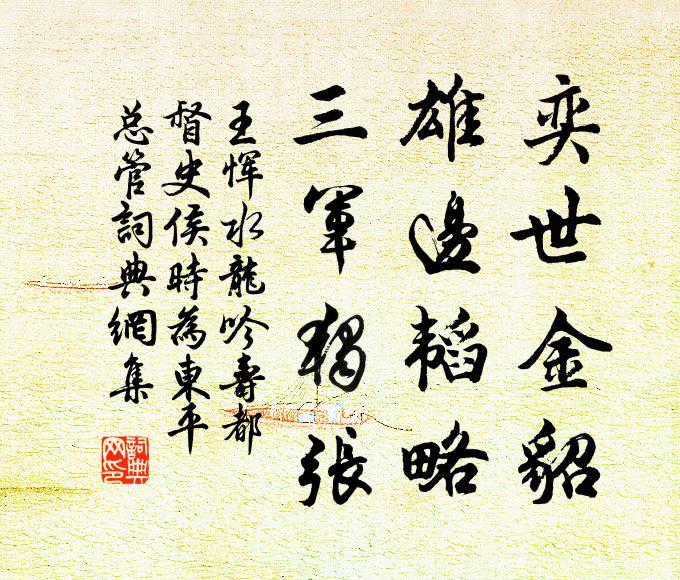 奕世金貂
雄邊韜略
三軍獨張
王惲水龍吟壽都
督史侯時為東平
总管詞典網集
詞典网印